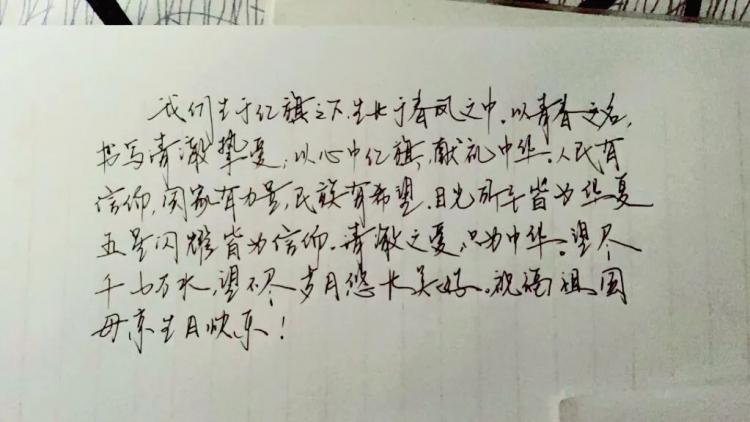 我们生于红旗之下,生长于春风之中。以青春之名,
书写清澈挚爱,以心中红旗,献礼中华。人民有
信仰,国家有力量,民族有希望。目光所至皆为华夏
五星闪耀皆为信仰。清澈之爱,只为中华。望尽
千山万水,望不尽岁月悠长美好。祝福祖国
母亲生日快乐!